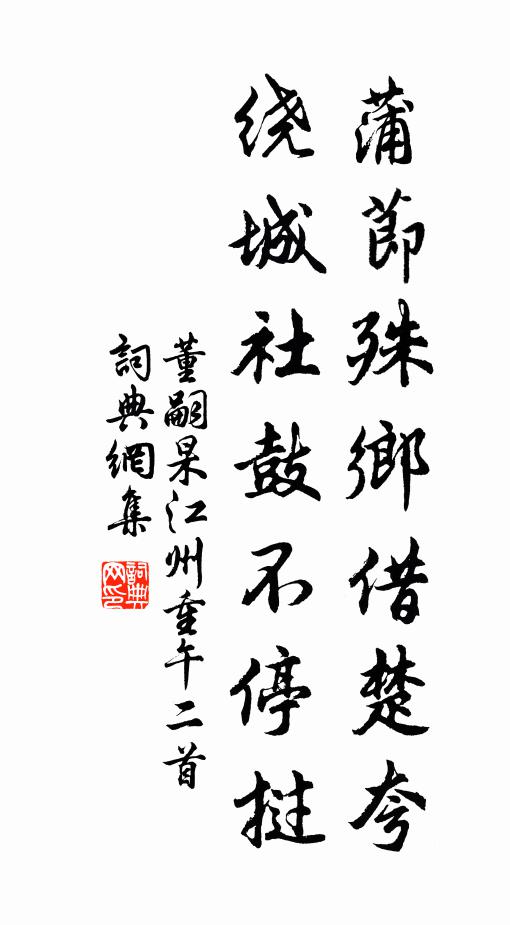 蒲節殊鄉借楚夸
绕城社鼓不停挝
董嗣杲江州重午二首
詞典網集
詞典网印